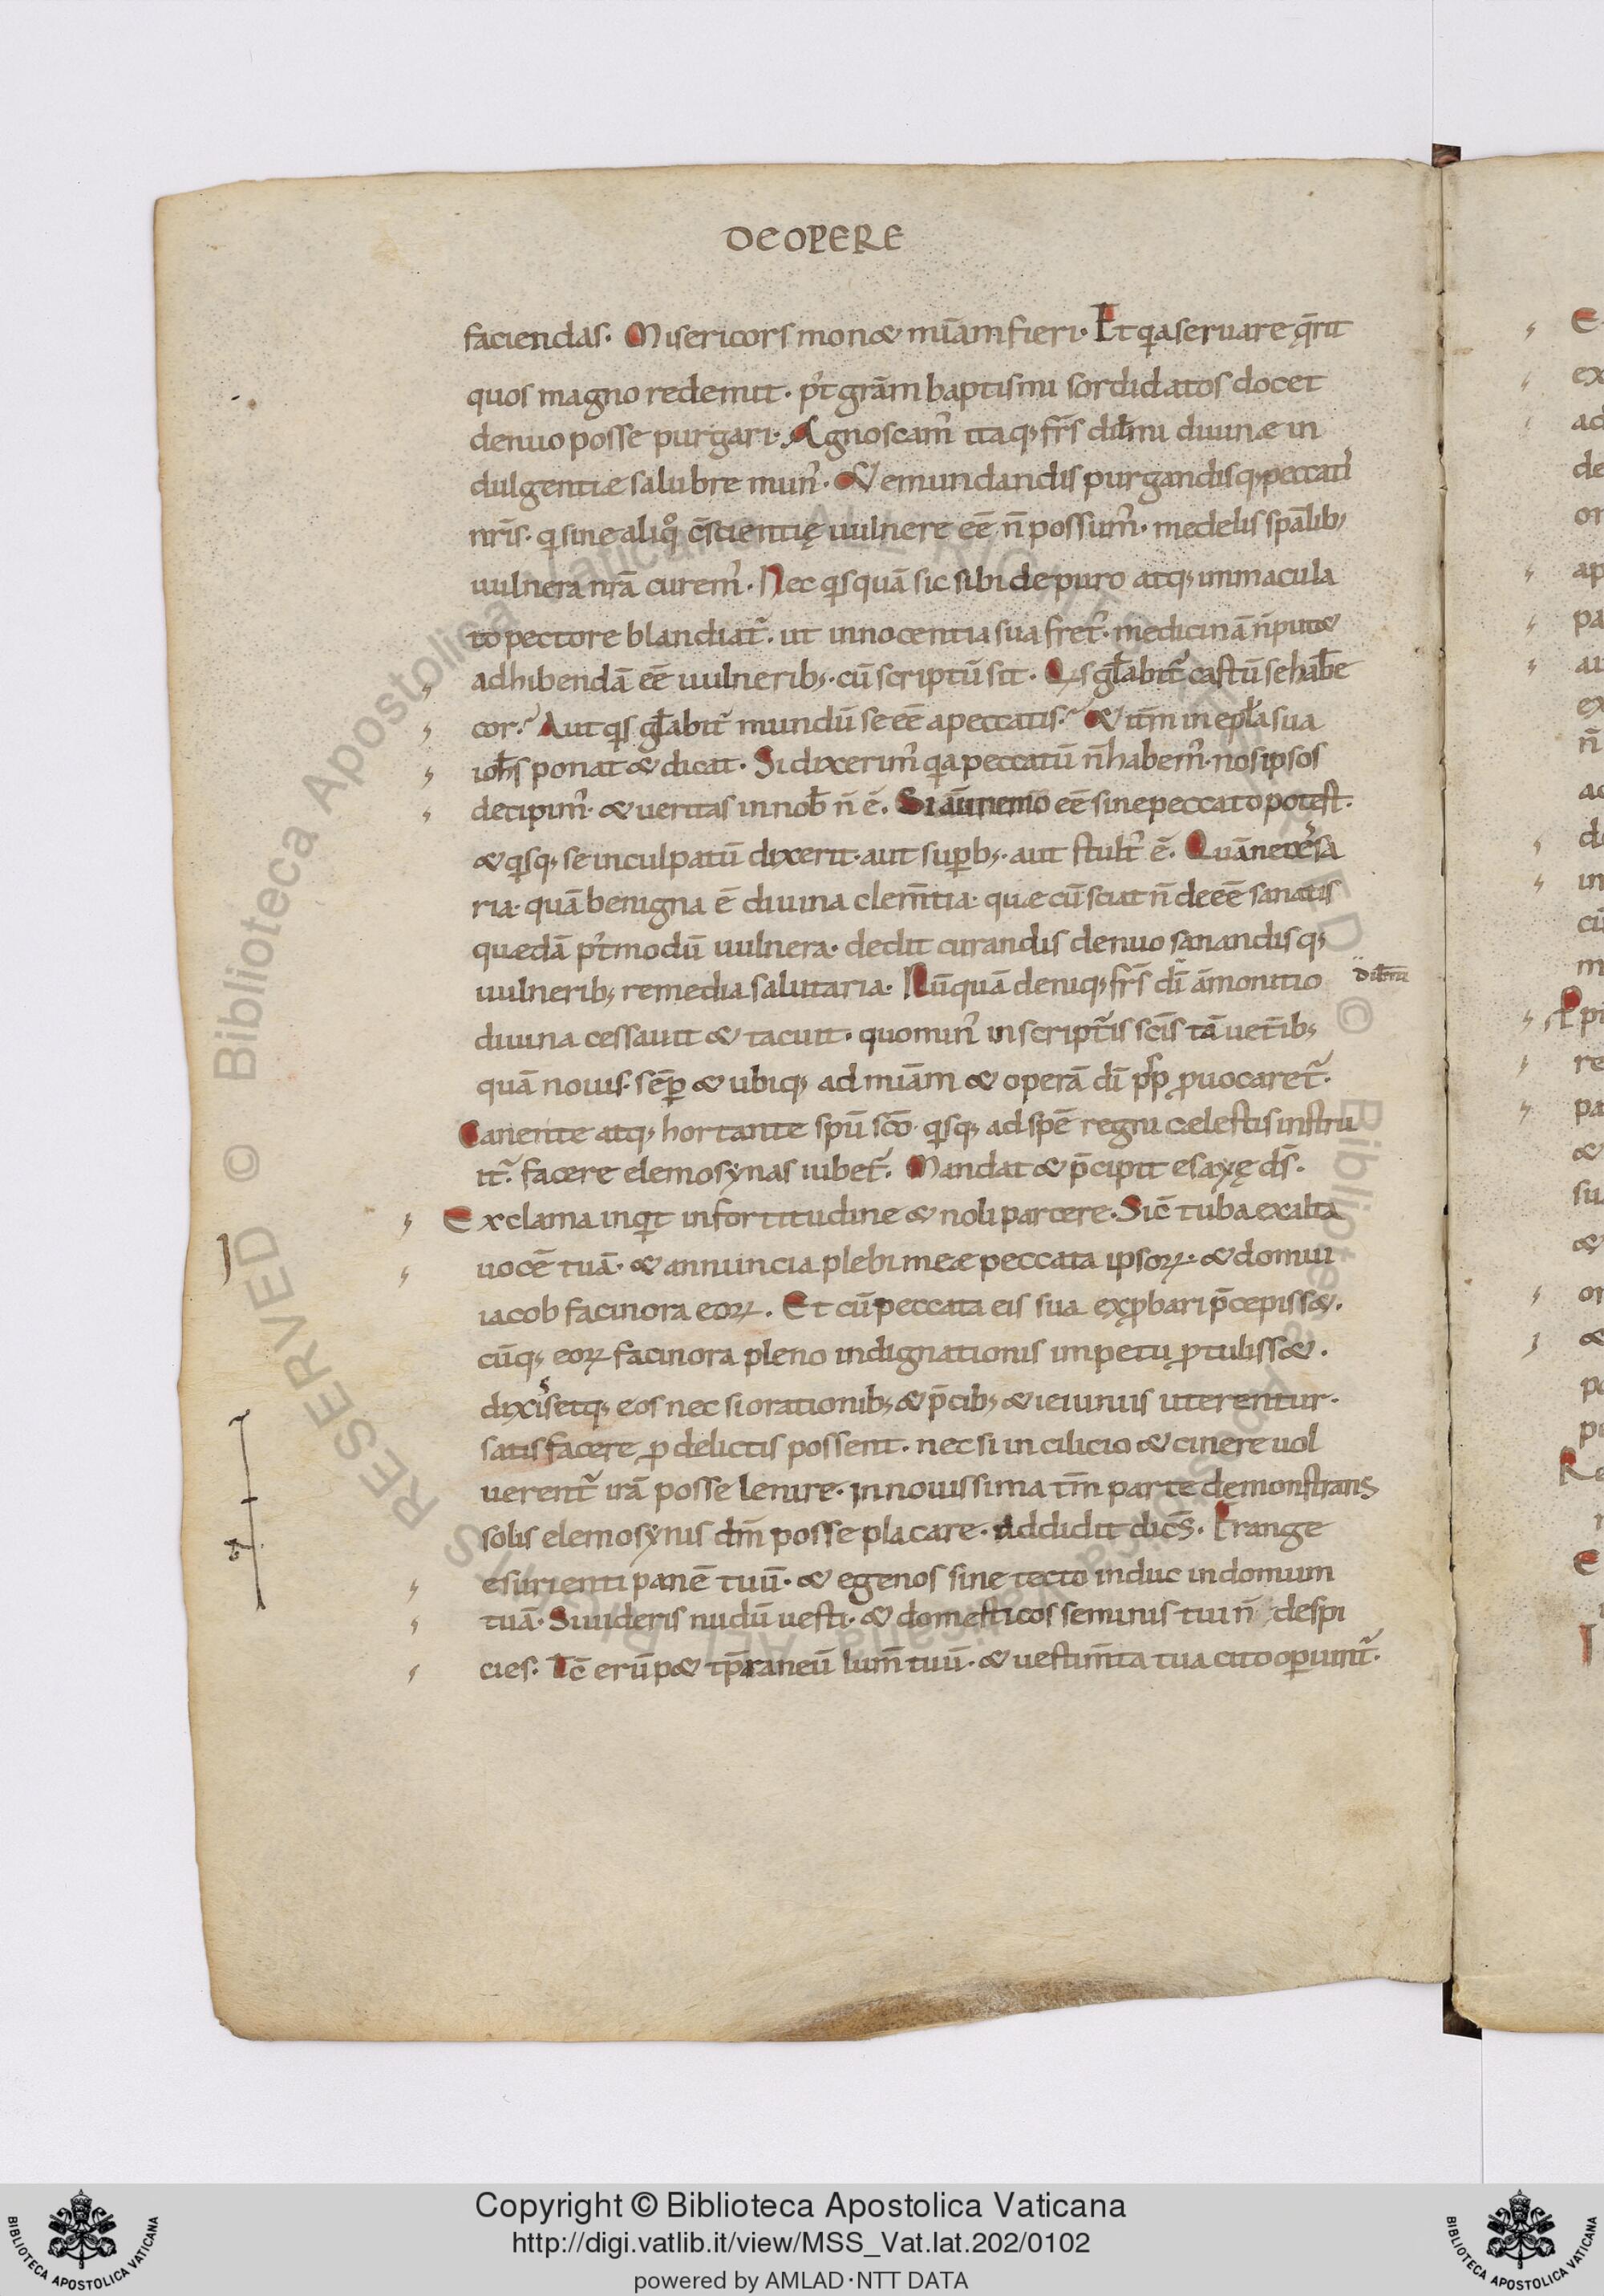 DE OPERE
faciendas. Misericors monet mīam fieri. Et qͥa seruare q̄rit
quos magno redemit. p̕t grām baptismi sordidatos docet
denuo posse purgari. Agnoscam᷒ itaq; fr̄s dil̄mi diuinæ in
dulgentiæ salubre mun᷒. & emundandis purgandisq; peccatis
nr̄is. qͥ sine aliqͦ c̄scientię uulnere eē n̄ possum᷒. medelis sp̄alib;
uulnera nr̄a curem᷒. Nec qͥsquā sic sibi de puro atq; immacula
to pectore blandiat᷒. ut innocentia sua fret᷒. medicinā n̄ putet
adhibendā eē uulnerib;. cū scriptū sit. Qͥs gl̄abit᷒ castū se hab̄e
cor? Aut qͥs gl̄abit᷒ mundū se eē a peccatis? & itm̄ in epl̄a sua
ioh̄s ponat & dicat. Si dixerim᷒ qͥa peccatū n̄ habem᷒. nos ipsos
decipim᷒. & ueritas in nob̄ n̄ ē. Si aūt nemo eē sine peccato potest.
& qͥsq; se inculpatū dixerit. aut sup̱b;. aut stult᷒ ē. Quā necessa
ria. quā benigna ē diuina clem̄tia. quæ cū sciat n̄ deeē sanatis
quædā p̕tmodū uulnera. dedit curandis denuo sanandisq;
uulnerib; remedia salutaria. Nūquā deniq; fr̄s di᷒ āmonitio
dil̄mi
diuina cessauit & tacuit. quomin᷒ in script᷒is sc̄is tā uet̄ib;
quā nouis. sēp̱ & ubiq; ad mīam & operā dī pp̄ ꝓuocaret᷒.
Canente atq; hortante spū sc̄o. qͥsq; ad spē regni cælestis instru
it᷒. facere elemosynas iubet᷒. Mandat & p̄cipit esayę ds̄.
Exclama inqͥt in fortitudine & noli parcere. Sic̄ tuba exalta
uocē tuā. & annuncia plebi meæ peccata ipsoꝝ. & domui
iacob facinora eoꝝ. Et cū peccata eis sua exꝓbari p̄cepisset.
cūq; eoꝝ facinora pleno indignationis impetu ꝓtulisset.
dixissetq; eos nec si orationib; & p̄cib; & ieiuniis uterentur.
satisfacere ꝓ delictis possent. nec si in cilicio & cinere uol
uerent᷒ irā posse lenire. in nouissima tm̄ parte demonstrans
solis elemosynis dm̄ posse placare. addidit dic̄s. Frange
esurienti panē tuū. & egenos sine tecto induc in domum
tuā. Si uideris nudū uesti. & domesticos seminis tui n̄ despi
cies. Tc̄ erūpet tp̄raneū lum̄ tuū. & uestim̄ta tua cito op̱iunt᷒.
Copyright © Biblioteca Apostolica Vaticana
http://digi.vatlib.it/view/MSS_Vat.lat.202/0102
powered by AMLAD·NTT DATA
BIBLIOTECA APOSTOLICA VATICANA
BIBLIOTECA APOSTOLICA VATICANA